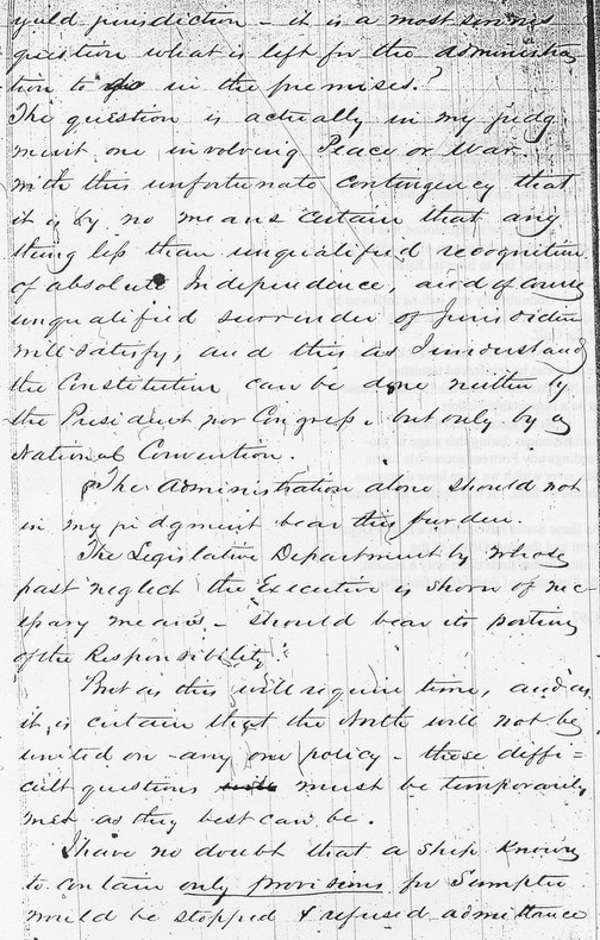 yield jurisdiction - it is a most serious
question what is left for the administra
tion to do in the premises.?
The question is actually in my judg
ment one involving Peace or War.
with this unfortunate contingency that
it is by no means certain that any
thing less than unqualified recognition
of absolute Independence, and of course
unqualified surrender of Jurisdiction
will satisfy, and this as I understand
the Constitution can be done neither by
the President nor Congress. but only by a
National Convention.
The Administration alone should not
in my judgment bear this burden.
The Legislative Department by whose
past neglect the Executive is shorn of nec-
essary means - should bear its portion
of the Responsibility.
But as this will require time, and as
it is certain that the North will not be
united on - any one policy - these diffi=
cult questions must be temporarily
met as they best can be.
I have no doubt that a ship known
to contain only provisions for Sumpter
would be stopped & refused admittance